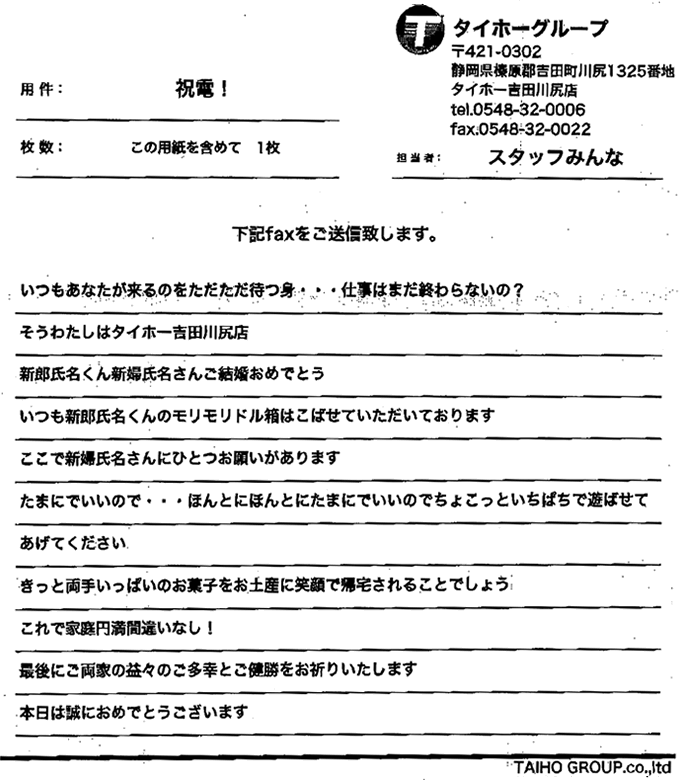 T タイホーグループ
〒421-0302
静岡県榛原郡吉田町川尻1325番地
タイホー吉田川尻店
tel.0548-32-0006
fax.0548-32-0022
用件： 祝電！
枚数： この用紙を含めて 1枚
担当者： スタッフみんな
下記faxをご送信致します。
いつもあなたが来るのをただただ待つ身・・・仕事はまだ終わらないの？
そうわたしはタイホー吉田川尻店
新郎氏名くん新婦氏名さんご結婚おめでとう
いつも新郎氏名くんのモリモリドル箱はこばせていただいております
ここで新婦氏名さんにひとつお願いがあります
たまにでいいので・・・ほんとにほんとにたまにでいいのでちょこっといちぱちで遊ばせて
あげてください
きっと両手いっぱいのお菓子をお土産に笑顔で帰宅されることでしょう
これで家庭円満間違いなし！
最後にご両家の益々のご多幸とご健勝をお祈りいたします
本日は誠におめでとうございます
TAIHO GROUP.co.,ltd